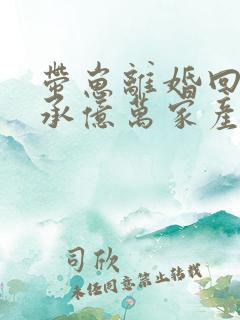 帶崽離婚回
承億萬家產
司欣
未經同意禁止轉載